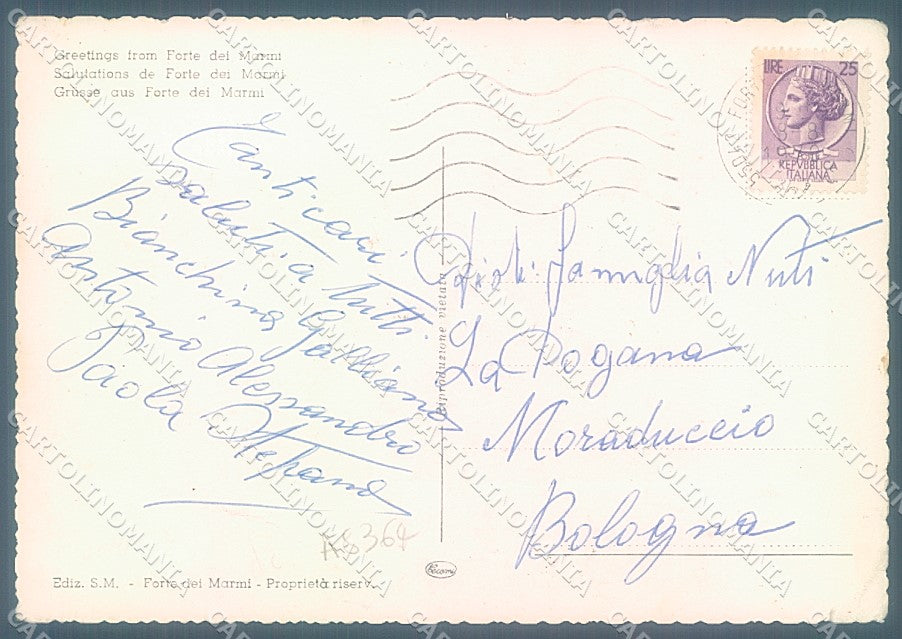 Greetings from Forte dei Marmi
Salutations de Forte dei Marmi
Grüsse aus Forte dei Marmi
Tanti cari
saluti a tutti
Bianchina Galliano
Antonio Alessandro
Paola Stefano
LIRE 25
REPVBBLICA
ITALIANA
famiglia Nuti
La Dogana
Moraduccio
Bologna
Riproduzione vietata
364
Ediz. S.M. - Forte dei Marmi - Proprietà riserv.
CARTOLINOMANIA